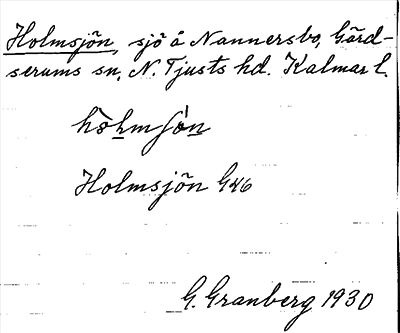 Holmsjön, sjö å Nannersbo, Gärd-
serums sn, N. Tjusts hd. Kalmar l.
Holmsjön G46
G. Granberg 1930